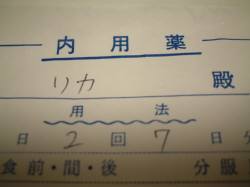 内用薬
リカ 殿
用法
日 2 回 7 日分
食前・間・後 分服